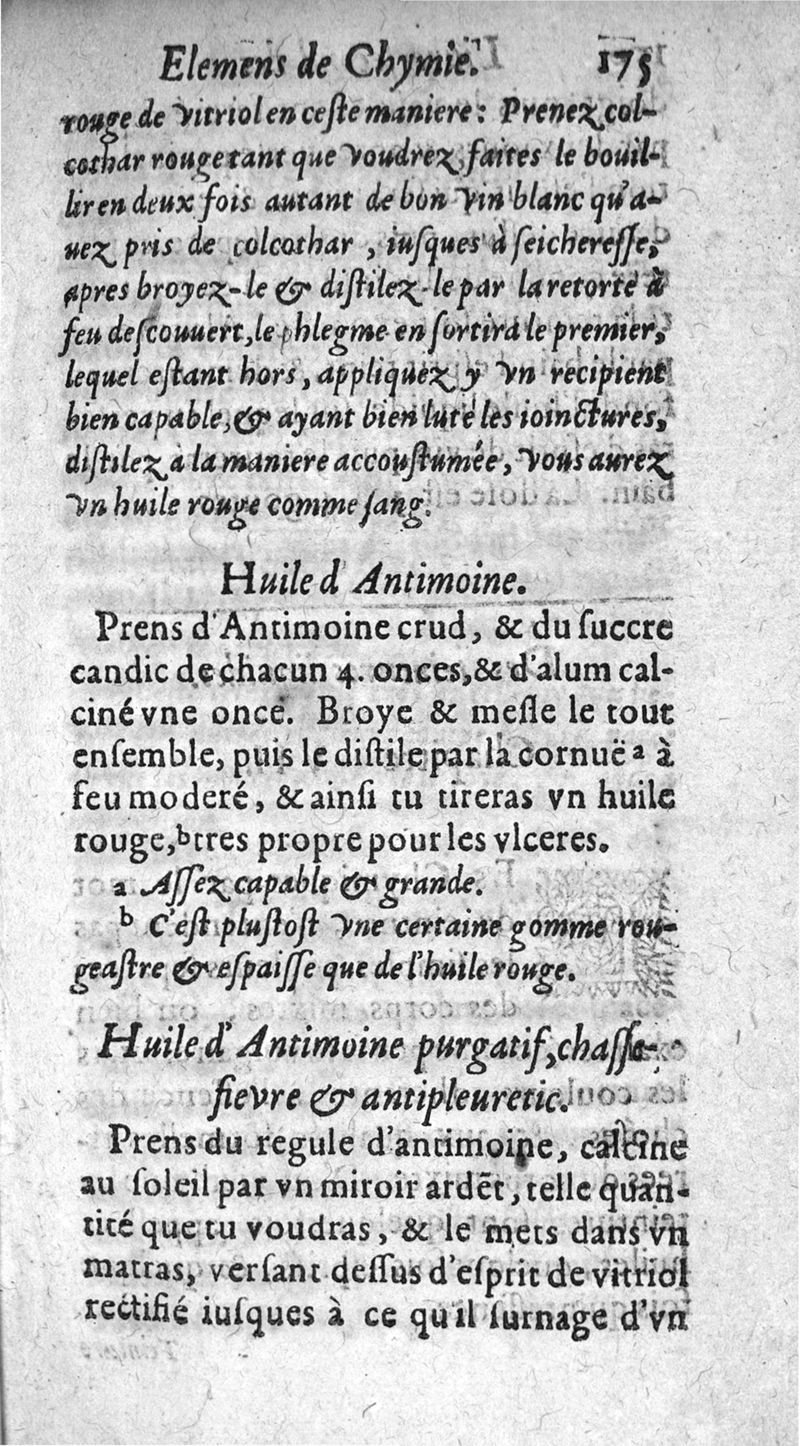 Elemens de Chymie. 175
rouge de vitriol en ceſte maniere: Prenez col-
cothar rouge tant que voudrez, faites le bouil-
lir en deux fois autant de bon vin blanc qu'a-
uez pris de colcothar, iuſques à ſeichereſſe,
apres broyez-le & diſtilez-le par la retorte à
feu deſcouuert, le phlegme en ſortira le premier,
lequel eſtant hors, appliquez y vn recipient
bien capable, & ayant bien luté les ioinctures,
diſtilez à la maniere accouſtumée, vous aurez
vn huile rouge comme ſang.
Huile d'Antimoine.
Prens d'Antimoine crud, & du ſuccre
candic de chacun 4. onces, & d'alum cal-
ciné vne once. Broye & meſle le tout
enſemble, puis le diſtile par la cornuë a à
feu moderé, & ainſi tu tireras vn huile
rouge, b tres propre pour les vlceres.
a Aſſez capable & grande.
b C'eſt pluſtoſt vne certaine gomme rou-
geaſtre & eſpaiſſe que de l'huile rouge.
Huile d'Antimoine purgatif, chaſſe-
fievre & antipleuretic.
Prens du regule d'antimoine, calciné
au ſoleil par vn miroir ardēt, telle quan-
tité que tu voudras, & le mets dans vn
matras, verſant deſſus d'eſprit de vitriol
rectifié iuſques à ce qu'il ſurnage d'vn